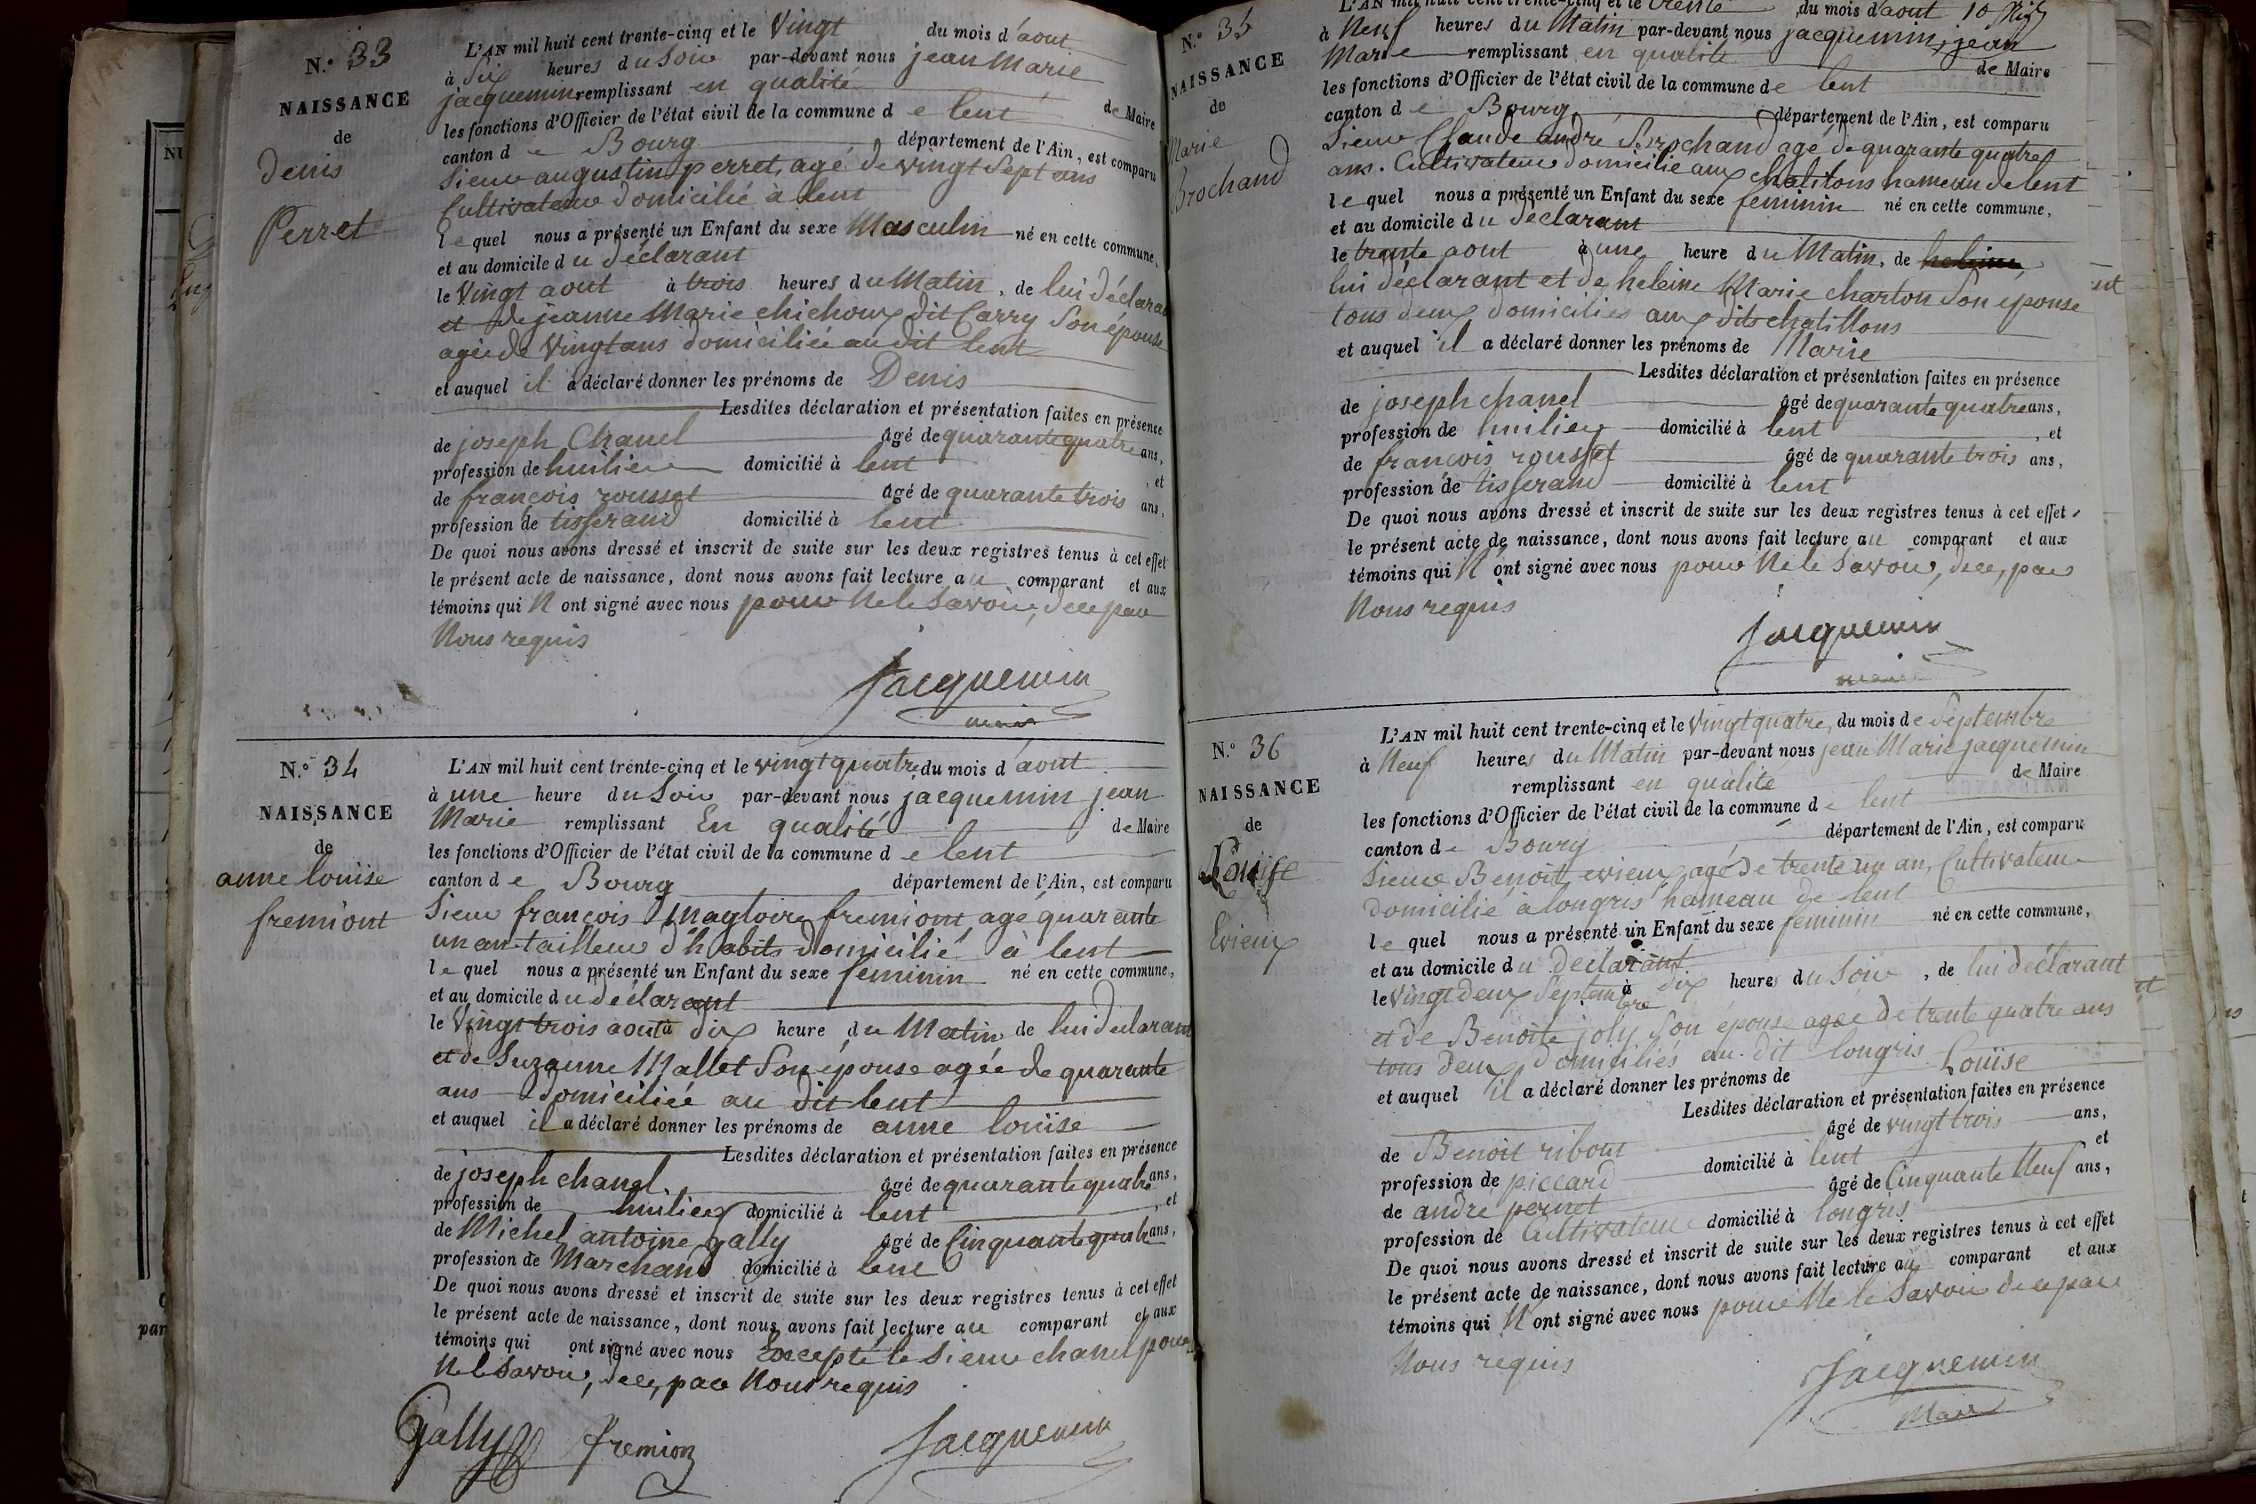 N.o 33
NAISSANCE
de
Denis
Perret
L'AN mil huit cent trente-cinq et le Vingt du mois d'aout
à Six heures du Soir par-devant nous jean Marie
jacquemin remplissant en qualité de Maire
les fonctions d'Officier de l'état civil de la commune de lent
canton de Bourg département de l'Ain, est comparu
Sieur augustin perret, agé de vingt Sept ans
Cultivateur domicilié à lent
lequel nous a présenté un Enfant du sexe Masculin né en cette commune,
et au domicile du déclarant
le Vingt aout à trois heures du Matin, de lui déclarant
et de jeanne Marie chichoux dit Carry Son épouse
agée de Vingt ans domiciliée au dit lent
et auquel il a déclaré donner les prénoms de Denis
Lesdites déclaration et présentation faites en présence
de joseph Chanel âgé de quarante quatre ans,
profession de huilier domicilié à lent, et
de françois rousset âgé de quarante trois ans,
profession de tisserand domicilié à lent
De quoi nous avons dressé et inscrit de suite sur les deux registres tenus à cet effet
le présent acte de naissance, dont nous avons fait lecture au comparant et aux
témoins qui N'ont signé avec nous pour Ne le Savoir, de ce, par
Nous requis
Jacquemin
maire
N.o 34
NAISSANCE
de
anne louise
fremiont
L'AN mil huit cent trente-cinq et le vingt quatre du mois d'aout
à une heure du Soir par-devant nous jacquemin jean
Marie remplissant En qualité de Maire
les fonctions d'Officier de l'état civil de la commune de lent
canton de Bourg département de l'Ain, est comparu
Sieur françois Magloire fremiont, agé quarante
un an tailleur d'habits domicilié à lent
lequel nous a présenté un Enfant du sexe féminin né en cette commune,
et au domicile du déclarant
le Vingt trois aout à dix heure du Matin de lui déclarant
et de Suzanne Mallet Son épouse agée de quarante
ans domiciliée au dit lent
et auquel il a déclaré donner les prénoms de anne louise
Lesdites déclaration et présentation faites en présence
de joseph chanel âgé de quarante quatre ans,
profession de huilier domicilié à lent, et
de Michel antoine gally âgé de Cinquante quatre ans,
profession de Marchand domicilié à lent
De quoi nous avons dressé et inscrit de suite sur les deux registres tenus à cet effet
le présent acte de naissance, dont nous avons fait lecture au comparant et aux
témoins qui ont signé avec nous Excepté le Sieur chanel pour
Ne le Savoir, de ce, par Nous requis
Gally fremion Jacquemin
N.o 35
NAISSANCE
de
Marie
Brochand
L'AN mil huit cent trente-cinq et le trente du mois d'aout
à Neuf heures du Matin par-devant nous jacquemin, jean
Marie remplissant en qualité de Maire
les fonctions d'Officier de l'état civil de la commune de lent
canton de Bourg département de l'Ain, est comparu
Sieur Claude andré Brochand agé de quarante quatre
ans. Cultivateur domicilié aux chalitons hameau de lent
lequel nous a présenté un Enfant du sexe féminin né en cette commune,
et au domicile du déclarant
le trente aout à une heure du Matin, de
lui déclarant et de heleine Marie charton Son épouse
tous deux domiciliés aux dits chatillons
et auquel il a déclaré donner les prénoms de Marie
Lesdites déclaration et présentation faites en présence
de joseph chanel âgé de quarante quatre ans,
profession de huilier domicilié à lent, et
de françois rousset âgé de quarante trois ans,
profession de tisserand domicilié à lent
De quoi nous avons dressé et inscrit de suite sur les deux registres tenus à cet effet
le présent acte de naissance, dont nous avons fait lecture au comparant et aux
témoins qui N'ont signé avec nous pour Ne le Savoir, de ce, par
Nous requis
Jacquemin
maire
N.o 36
NAISSANCE
de
Louise
Evieux
L'AN mil huit cent trente-cinq et le Vingt quatre, du mois de Septembre
à Neuf heures du Matin par-devant nous jean Marie jacquemin
remplissant en qualité de Maire
les fonctions d'Officier de l'état civil de la commune de lent
canton de Bourg département de l'Ain, est comparu
Sieur Benoit evieux agé de trente un an, Cultivateur
domicilié à longris hameau de lent
lequel nous a présenté un Enfant du sexe féminin né en cette commune,
et au domicile du déclarant
le Vingt deux Septembre à dix heures du Soir, de lui déclarant
et de Benoite joly Son épouse agée de trente quatre ans
tous deux domiciliés au dit longris
et auquel il a déclaré donner les prénoms de Louise
Lesdites déclaration et présentation faites en présence
de Benoit ribout âgé de vingt trois ans,
profession de piccard domicilié à lent et
de andré pernet âgé de Cinquante Neuf ans,
profession de Cultivateur domicilié à longris
De quoi nous avons dressé et inscrit de suite sur les deux registres tenus à cet effet
le présent acte de naissance, dont nous avons fait lecture au comparant et aux
témoins qui N'ont signé avec nous pour Ne le Savoir de ce par
Nous requis
Jacquemin
Maire